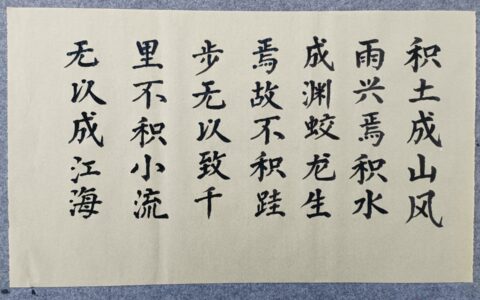 积土成山风
雨兴焉积水
成渊蛟龙生
焉故不积跬
步无以致千
里不积小流
无以成江海